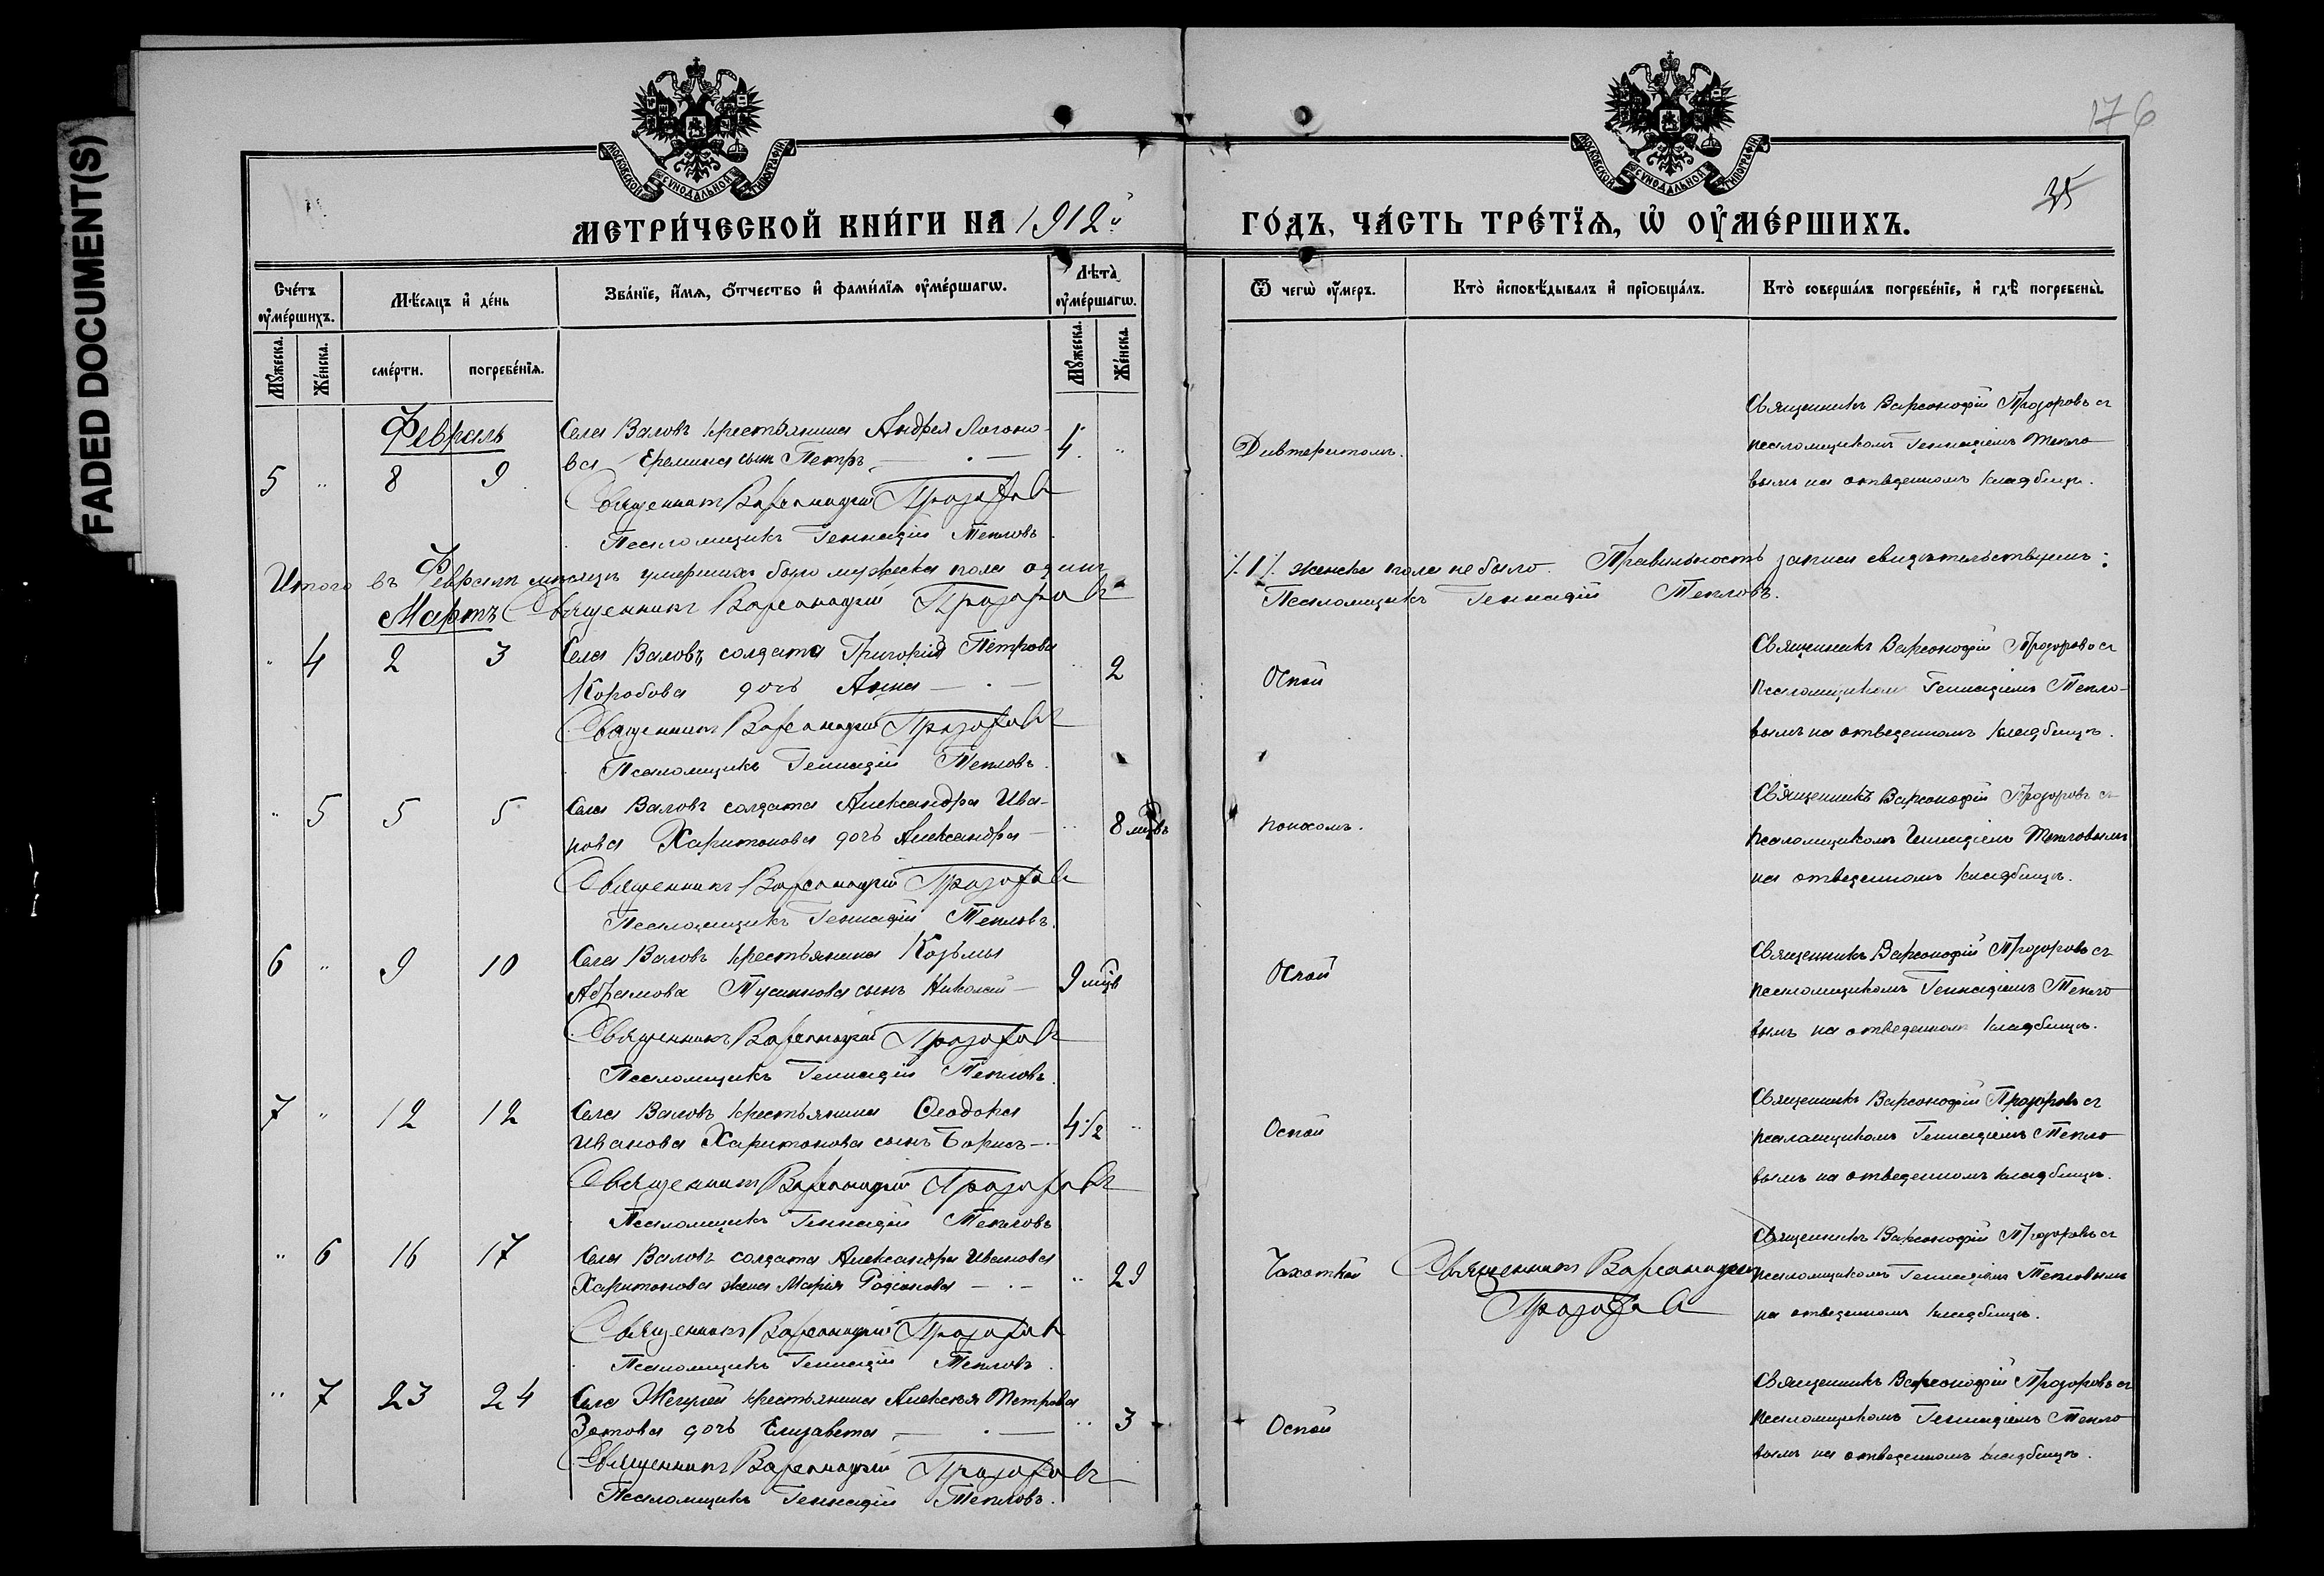 FADED DOCUMENT(S)
176
35
МОСКОВСКОЙ СѴНОДАЛЬНОЙ ТИПОГРАФІИ
МОСКОВСКОЙ СѴНОДАЛЬНОЙ ТИПОГРАФІИ
МЕТРИ́ЧЕСКОЙ КНИ́ГИ НА 1912й ГО́ДЪ, ЧА́СТЬ ТРЕ́ТЇѦ, Ѡ҆ ОУ҆МЕ́РШИХЪ.
Сче́тъ оу҆ме́ршихъ.
Мѣ́сяцъ и҆ де́нь
Зва́нїе, и҆́мѧ, ѻ҆́тчество и҆ фами́лїѧ оу҆ме́ршагѡ.
Лѣта̀ оу҆ме́ршагѡ.
Ѿ чегѡ̀ оу҆́меръ.
Кто̀ и҆сповѣ́дывалъ и҆ прїѻбща́лъ.
Кто̀ соверша́лъ погребе́нїе, и҆ гдѣ̀ погребены̀.
Мꙋ́жеска.
Же́нска.
сме́рти.
погребе́нїѧ.
Мꙋ́жеска.
Же́нска.
Февраль
5 " 8 9 Села Валовъ крестьянина Андрея Логино-
ва Еремина сынъ Петръ 4. " Дивтеритомъ.
Священникъ Варсонофій Прозоровъ
Псаломщикъ Геннадій Тепловъ
Священникъ Варсонофій Прозоровъ съ
псаломщикомъ Геннадіемъ Тепло-
вымъ на отведенномъ кладбищѣ.
Итого въ Февралѣ мѣсяцѣ умершихъ было мужеска пола одинъ /1/ женска пола не было. Правильность записи свидѣтельствуемъ:
Священникъ Варсонофій Прозоровъ Псаломщикъ Геннадій Тепловъ.
Мартъ
" 4 2 3 Села Валовъ солдата Григорія Петрова
Коробова дочь Анна " 2 Оспой
Священникъ Варсонофій Прозоровъ
Псаломщикъ Геннадій Тепловъ.
Священникъ Варсонофій Прозоровъ съ
псаломщикомъ Геннадіемъ Тепло-
вымъ на отведенномъ кладбищѣ.
" 5 5 5 Села Валовъ солдата Александра Ива-
нова Харитонова дочь Александра " 8 мцвъ поносомъ.
Священникъ Варсонофій Прозоровъ
Псаломщикъ Геннадій Тепловъ.
Священникъ Варсонофій Прозоровъ съ
псаломщикомъ Геннадіемъ Тепловымъ
на отведенномъ кладбищѣ.
6 " 9 10 Села Валовъ крестьянина Козьмы
Абрамова сынъ Николай 9 мцв Оспой
Священникъ Варсонофій Прозоровъ
Псаломщикъ Геннадій Тепловъ.
Священникъ Варсонофій Прозоровъ съ
псаломщикомъ Геннадіемъ Тепло
вымъ на отведенномъ кладбищѣ.
7 " 12 12 Села Валовъ крестьянина Ѳеодора
Иванова Харитонова сынъ Борисъ 4 1/2 " Оспой
Священникъ Варсонофій Прозоровъ
Псаломщикъ Геннадій Тепловъ
Священникъ Варсонофій Прозоровъ съ
псаломщикомъ Геннадіемъ Тепло
вымъ на отведенномъ кладбищѣ.
" 6 16 17 Села Валовъ солдата Александра Иванова
Харитонова жена Марія Родіонова " 29 Чахоткой Священникъ Варсонофій
Прозоровъ
Священникъ Варсонофій Прозоровъ
Псаломщикъ Геннадій Тепловъ.
Священникъ Варсонофій Прозоровъ съ
псаломщикомъ Геннадіемъ Тепловымъ
на отведенномъ кладбищѣ.
" 7 23 24 Села крестьянина Алексѣя Петрова
Зотова дочь Елизавета " 3 Оспой
Священникъ Варсонофій Прозоровъ
Псаломщикъ Геннадій Тепловъ.
Священникъ Варсонофій Прозоровъ съ
псаломщикомъ Геннадіемъ Тепло
вымъ на отведенномъ кладбищѣ.